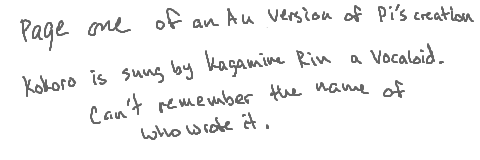 Page one of an Au version of Pi's creation
Kokoro is sung by Kagamine Rin a Vocaloid.
Can't remember the name of
who wrote it.